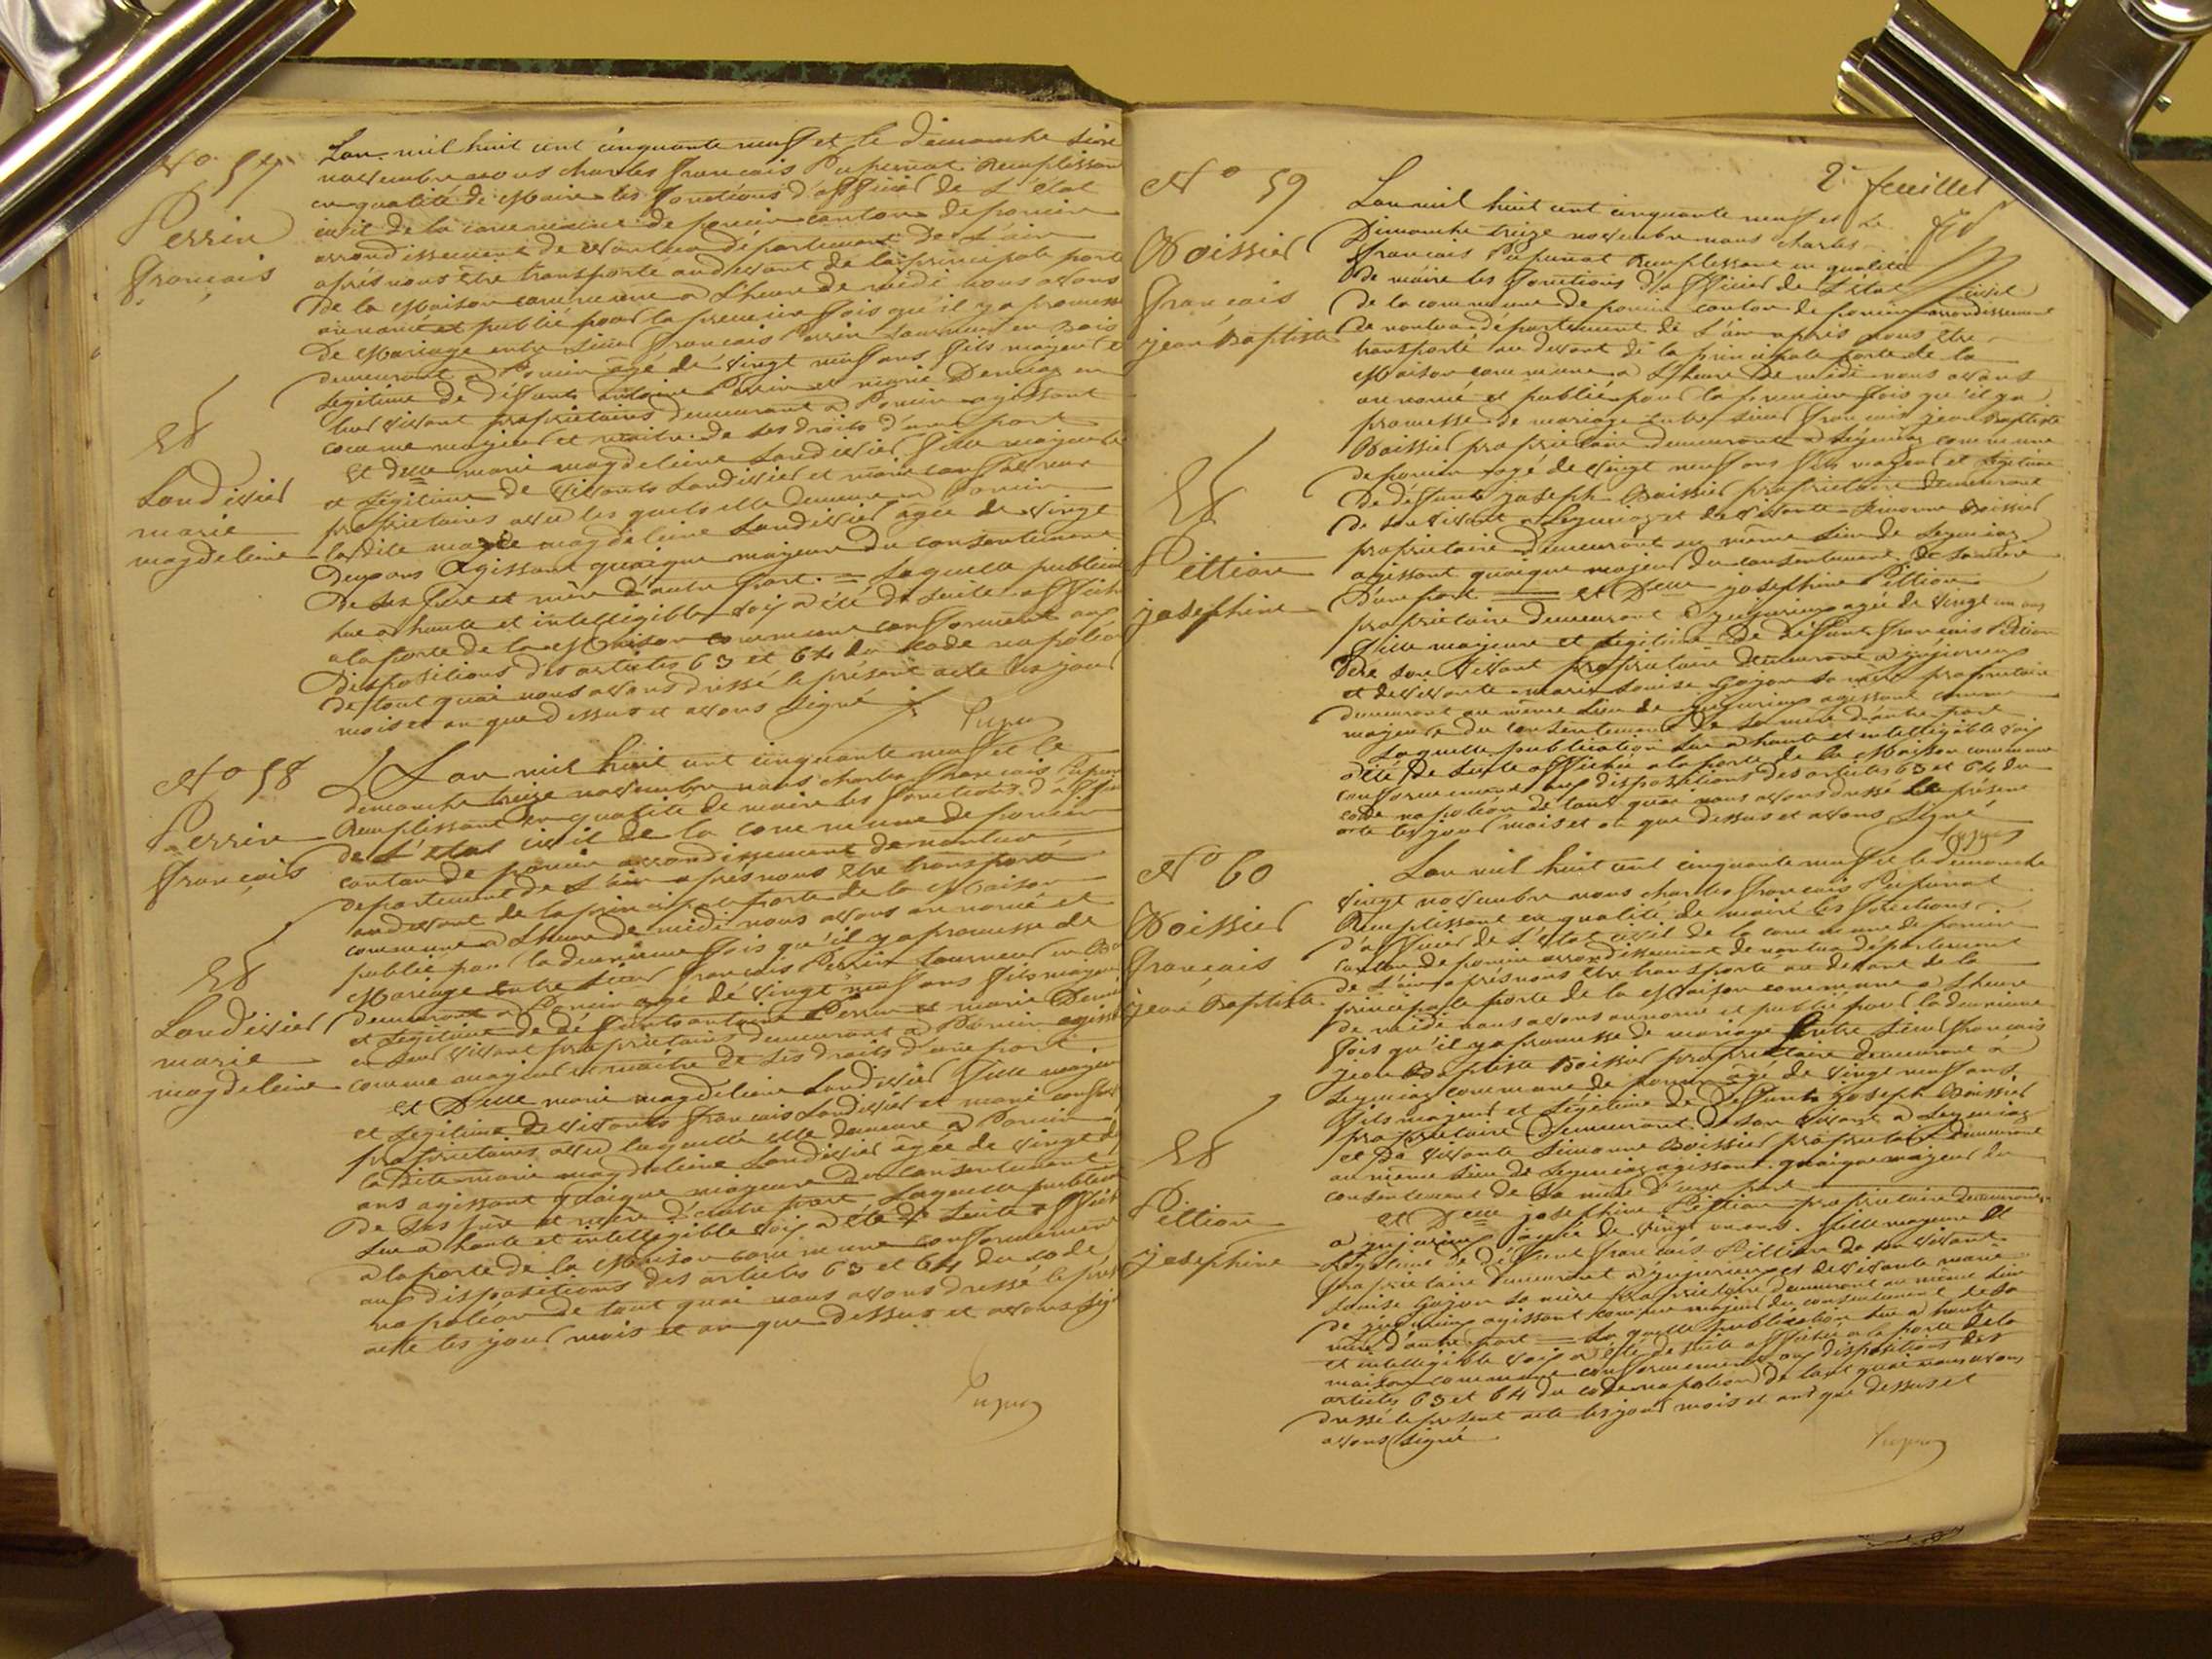 N° 57
Perrin
français
et
Landivier
marie
magdeleine
Lan mil huit cent cinquante neuf et le dimanche
novembre nous charles francois Pupunat Remplissant
en qualité de Maire les fonctions d'officier de L'état
civil de la commune de poncin canton de poncin
arrondissement de nantua département de L'ain
après nous être transporté au devant de la principale porte
de la Maison commune a L'heure de midi nous avons
annoncé et publié pour la premiere fois qu'il y a promesse
de Mariage entre sieur francois Perrin tourneur en Bois
demeurant a Poncin agé de vingt neuf ans fils majeur et
legitime de défunts antoine Perrin et marie en
leur vivant propriétaires demeurant a Poncin agissant
comme majeur et maitre de ses droits d'une part
et delle marie magdeleine Landivier fille majeure
et Légitime de vivants Landivier et marie
propriétaires avec les quels elle demeure a Poncin
la dite marie magdeleine Landivier agée de vingt
deux ans agissant quoique majeure du consentement
de ses père et mère d'autre part = Laquelle publication
lue a haute et intelligible voix a été de suite affichée
a la porte de la Maison commune conforment aux
Dispositions des articles 63 et 64 du code napoléon
de tout quoi nous avons dressé le présent acte les jour
mois et an que dessus et avons signé
N° 58
Perrin
français
et
Landivier
marie
magdeleine
Lan mil huit cent cinquante neuf et le
dimanche treize novembre nous charles francois
Remplissant en qualité de maire les fonctions d'officier
de L'état civil de la commune de poncin
canton de poncin arrondissement de nantua
departement de L'ain après nous être transporté
au devant de la principale porte de la Maison
commune a L'heure de midi nous avons annoncé et
publié pour la deuxième fois qu'il y a promesse de
Mariage entre sieur francois Perrin tourneur en Bois
demeurant a Poncin agé de vingt neuf ans fils majeur
et Legitime de défunts antoine Perrin et marie
en leur vivant propriétaires demeurant a Poncin agissant
comme majeur et maitre de ses droits d'une part
et Delle marie magdeleine Landivier fille majeure
et Legitime de vivants francois Landivier et marie
propriétaires avec laquelle elle demeure a Poncin
la dite marie magdeleine Landivier âgée de vingt
ans agissant quoique majeure du consentement
de ses père et mère d'autre part Laquelle publication
lue a haute et intelligible voix a été de suite affichée
a la porte de la Maison commune conformement
aux dispositions des articles 63 et 64 du code
napoléon de tout quoi nous avons dressé le présent
acte les jour mois et an que dessus et avons signé
2e feuillet
N° 59
Boissier
français
jean Baptiste
et
Pittion
josephine
Lan mil huit cent cinquante neuf et Le
Dimanche treize novembre nous charles
francois Pupunat Remplissant en qualité
de maire les fonctions d'officier de L'état civil
de la commune de poncin canton de poncin arrondissement
de nantua département de L'ain après nous être
transporté au devant de la principale porte de la
Maison commune a L'heure de midi nous avons
annoncé et publié pour la premiere fois qu'il y a
promesse de mariage entre sieur francois jean Baptiste
Boissier propriétaire demeurant a Leymiaz commune
de poncin agé de vingt neuf ans fils majeur et Légitime
de défunt joseph Boissier propriétaire demeurant
de son vivant a Leymiaz et de vivante Simonne Boissier
propriétaire demeurant au même lieu de Leymiaz
agissant quoique majeur du consentement de sa mère
d'une part = et Delle josephine Pittion
propriétaire demeurant a jujurieux agée de vingt un ans
fille majeure et légitime de défunt francois Pittion
de son vivant propriétaire demeurant a jujurieux
et de vivante marie Louise Goyon sa mère propriétaire
demeurant au même lieu de jujurieux agissant comme
majeure du consentement de sa mère d'autre part
Laquelle publication lue a haute et intelligible voix
a été de suite affichée a la porte de la Maison commune
conformement aux dispositions des articles 63 et 64 du
code napoléon de tout quoi nous avons dressé le présent
acte les jour mois et an que dessus et avons signé
N° 60
Boissier
français
jean Baptiste
et
Pittion
josephine
Lan mil huit cent cinquante neuf et le dimanche
vingt novembre nous charles francois Pupunat
Remplissant en qualité de maire les fonctions
d'officier de L'état civil de la commune de poncin
canton de poncin arrondissement de nantua département
de L'ain après nous être transporté au devant de la
principale porte de la Maison commune a L'heure
de midi nous avons annoncé et publié pour la deuxieme
fois qu'il y a promesse de mariage Entre sieur francois
jean Baptiste Boissier propriétaire demeurant à
Leymiaz commune de poncin âgé de vingt neuf ans
fils majeur et Légitime de défunt joseph Boissier
propriétaire demeurant de son vivant a Leymiaz
et de vivante Simonne Boissier propriétaire demeurant
au même lieu de Leymiaz agissant quoique majeur du
consentement de sa mère d'une part
et Delle josephine Pittion propriétaire demeurant
a jujurieux agée de vingt un ans fille majeure et
Légitime de défunt francois Pittion de son vivant
propriétaire demeurant a jujurieux et de vivante marie
Louise Goyon sa mère propriétaire demeurant au même lieu
de jujurieux agissant comme majeur du consentement de sa
mère d'autre part = Laquelle publication lue a haute
et intelligible voix a été de suite affichée a la porte de la
maison commune conformement aux dispositions des
articles 63 et 64 du code napoléon de tout quoi nous avons
dressé le présent acte les jour mois et an que dessus et
avons signé